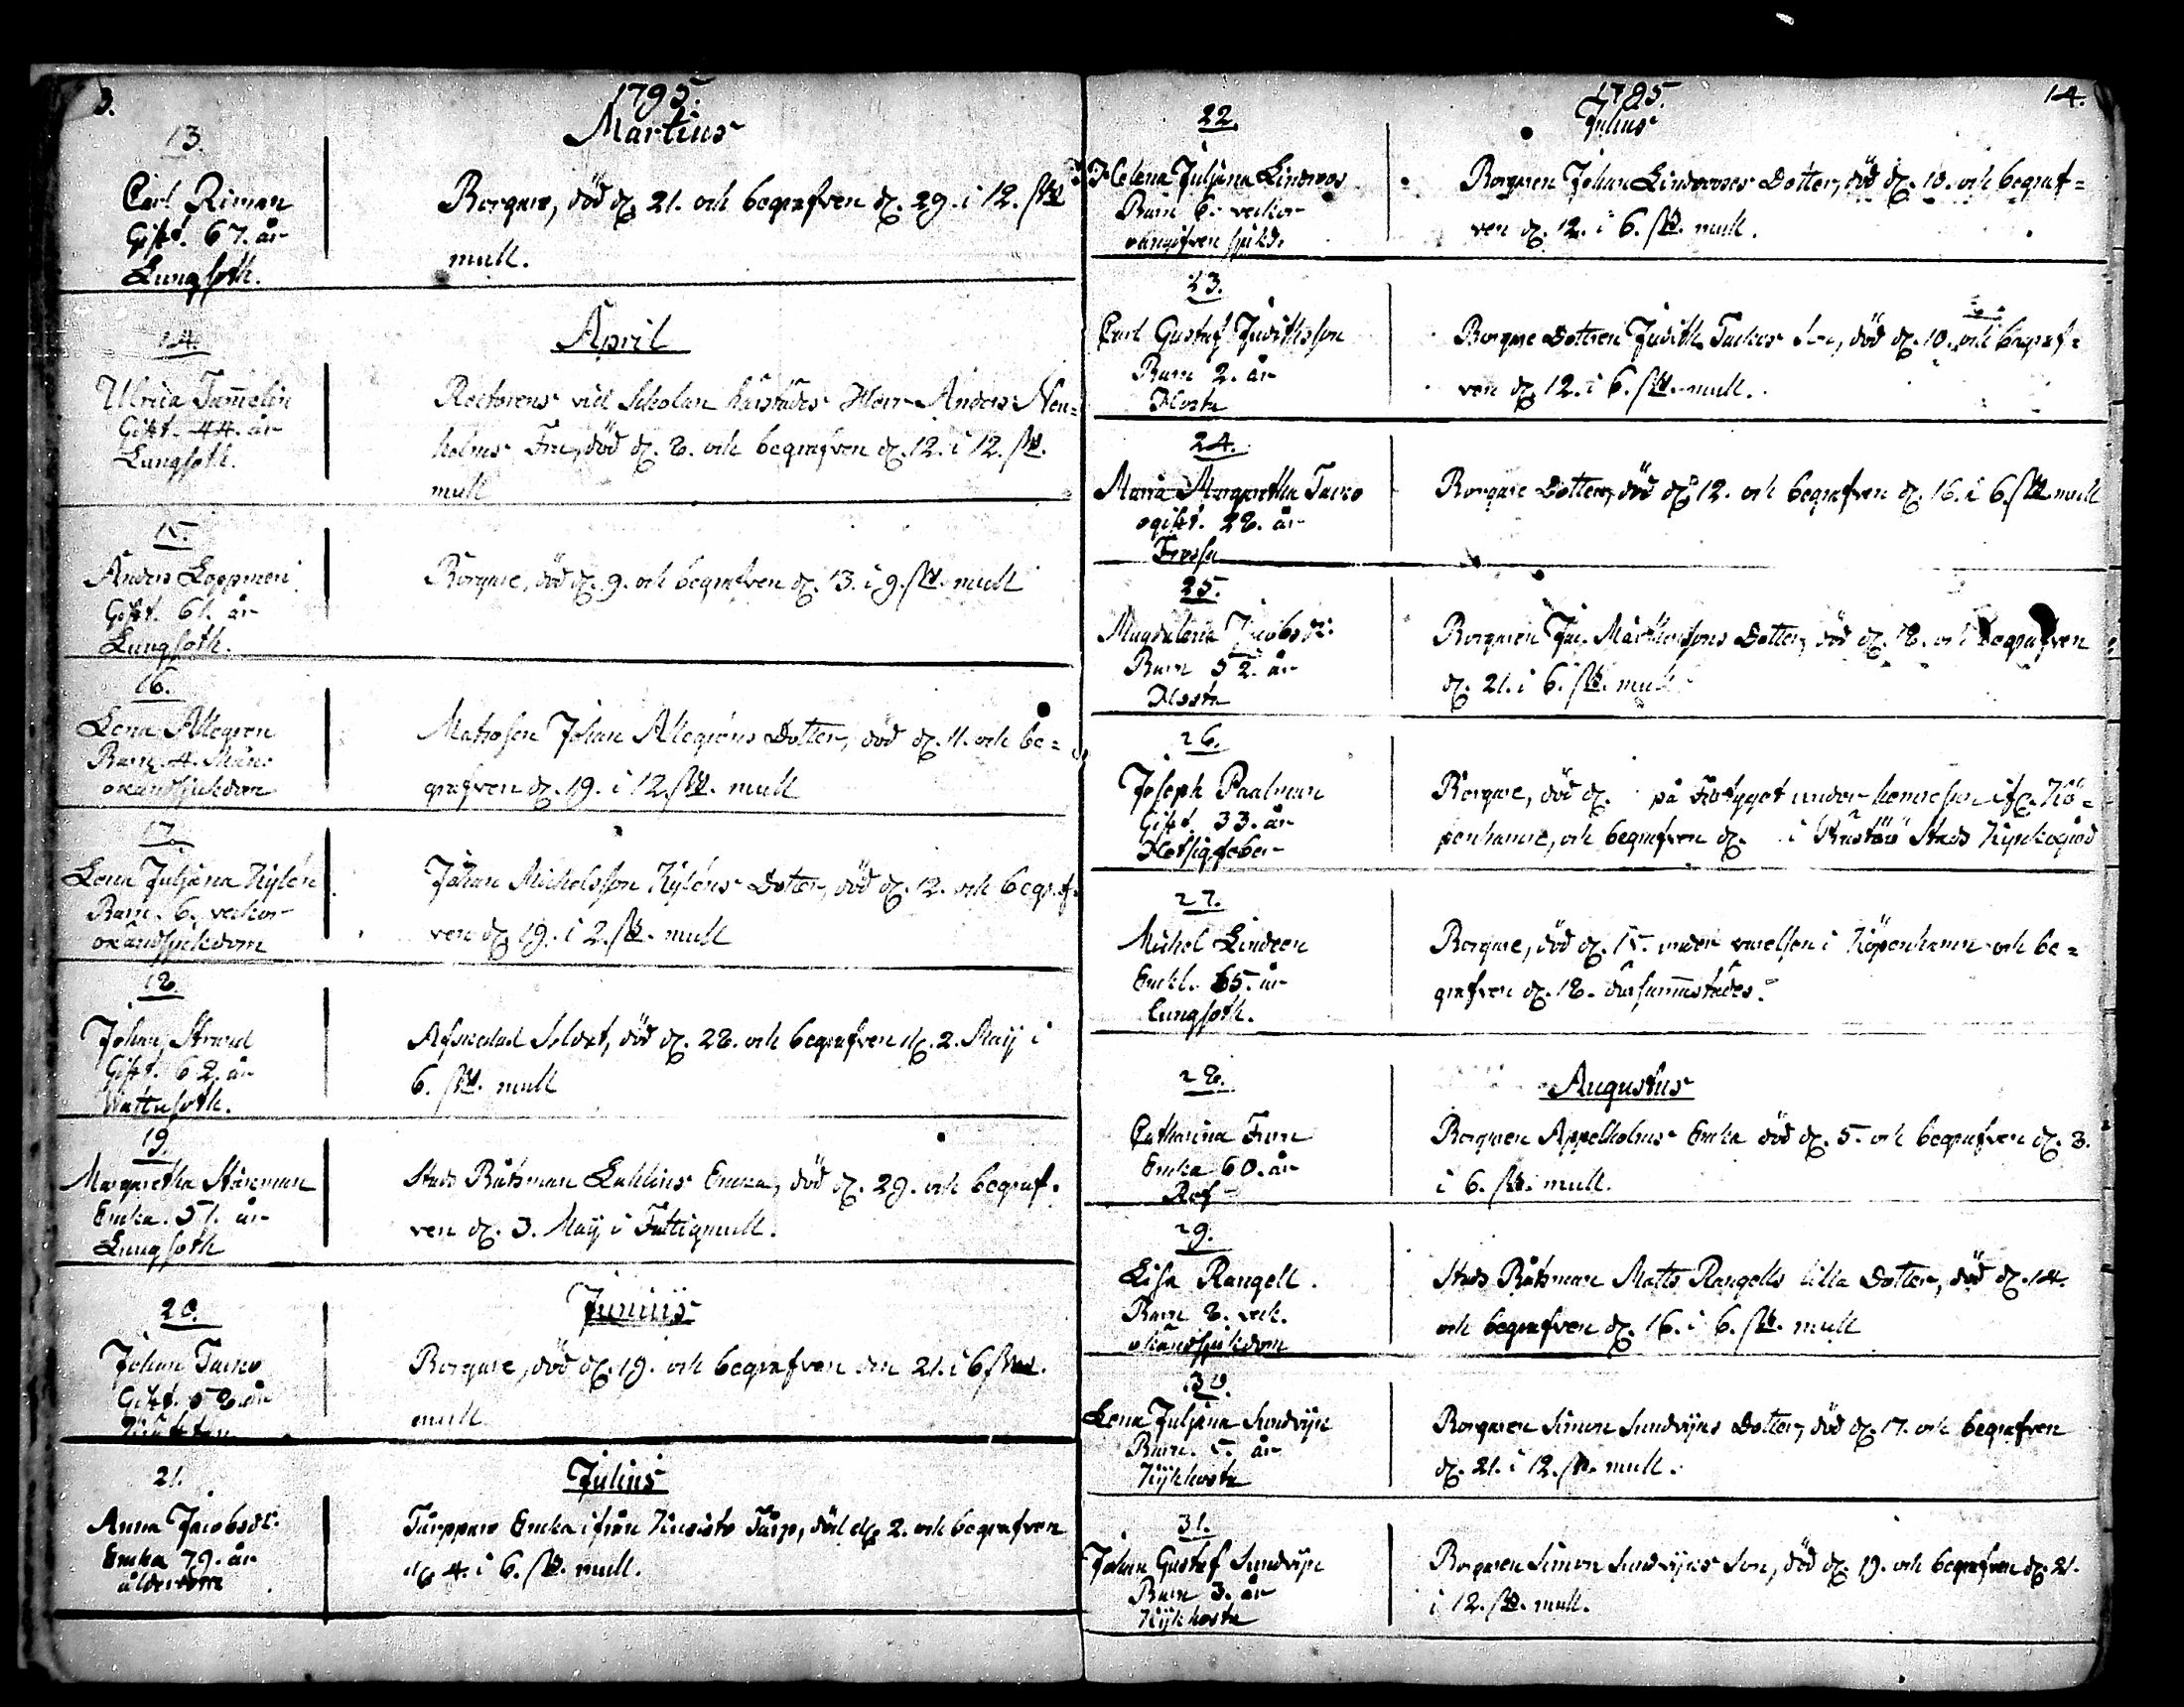 3.
1795.
Martius
13.
Carl Riman
Gift. 67. år
Lungsoth.
Borgare, död d. 21. och begrafven d. 29. i 12. sk
mull.
April
14.
Ulrica Tammelin
Gift. 44. år
Lungsoth.
Rectorens vid Scholan härstädes Herr Anders Nen=
holms Fru, död d. 8. och begrafven d. 12. i 12. sk.
mull
15.
Anders Loppmen
Gift. 61. år
Lungsoth.
Borgare, död d. 9. och begrafven d. 13. i 9. sk. mull
16.
Lena Allegren
Barn. 4. Mån.
okändsjukdom
Matrosen Johan Allegrens Dotter, död d. 11. och be=
grafven d. 19. i 12. sk. mull
17.
Lena Juliana Kylén
Barn. 6. veckor
okändsjukdom
Johan Michelsson Kyléns Dotter, död d. 12. och begraf=
ven d. 19. i 2. sk. mull
18.
Johan Strand
Gift. 62. år
Wattusoth.
Afskedad Soldat, död d. 28. och begrafven d. 2. Maij i
6. sk. mull
19.
Margaretha Stånman
Enka. 51. år
Lungsoth
Stads Båtsman Lahlins Enka, död d. 29. och begraf=
ven d. 3. Maij i Fattigmull.
20.
Junius
Johan Tacko
Gift. 58. år
Borgare, död d. 19. och begrafven den 21. i 6 sk.
mull
21.
Julius
Anna Jacobsdr.
Enka 79. år
ålderdom
Torppare Enka ifrån Kuisisto Torp, död d. 2. och begrafven
d. 4. i 6. sk. mull.
1795.
Julius
14.
22.
Helena Juliana Lindroos
Barn 6. veckor
oangifven sjukd.
Borgaren Johan Lindrooses Dotter, död d. 10. och begraf=
ven d. 12. i 6. sk. mull.
23.
Carl Gustaf Judithsson
Barn 2. år
Hosta
Borgare Dottren Judith Tackos Son, död d. 10. och begraf=
ven d. 12. i 6. sk. mull.
24.
Maria Margaretha Tacko
ogift. 28. år
Frossa
Borgare Dotter, död d. 12. och begrafven d. 16. i 6. sk. mull
25.
Magdalena Jacobsdr.
Barn 5 2. år
Hosta
Borgaren Jac. Matthessons Dotter, död d. 18. och begrafven
d. 21. i 6. sk. mull
26.
Joseph Paalman
Gift 33. år
Hetsigfeber
Borgare, död d. på Fartyget under hemresan ifr. Kö=
penhamn, och begrafven d. i Stads Kyrkogård
27.
Michel Lindeen
Enkl. 65. år
Lungsoth.
Borgare, död d. 15. under varelsen i Köpenhamn och be=
grafven d. 18. därsammastädes.
28.
Augustus
Catharina Fron
Enka 60. år
Rof
Borgaren Appelholms Enka död d. 5. och begrafven d. 8.
i 6. sk. mull.
29.
Lisa Rangell.
Barn 8. veck.
okändsjukdom
Stads Båtsman Matts Rangells lilla Dotter, död d. 14.
och begrafven d. 16. i 6. sk. mull
30.
Lena Juliana Sundvijk
Barn. 5. år
Kijkhosta
Borgaren Simon Sundvijks Dotter, död d. 17. och begrafven
d. 21. i 12. sk. mull.
31.
Johan Gustaf Sundvijk
Barn 3. år
Kijkhosta
Borgaren Simon Sundvijks Son, död d. 19. och begrafven d. 21.
i 12. sk. mull.